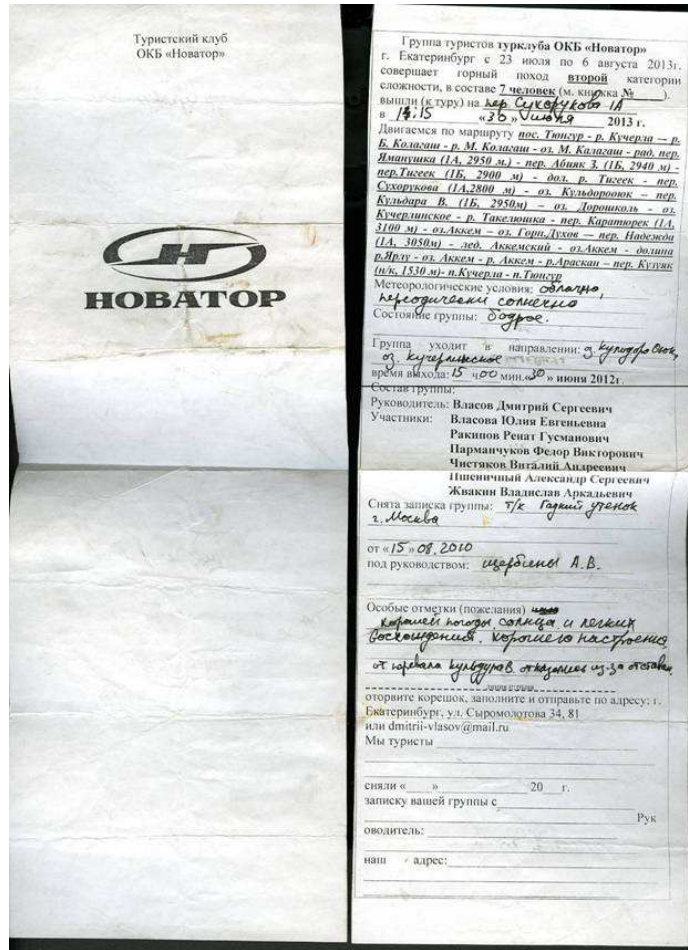 Туристский клуб
ОКБ «Новатор»
НОВАТОР
Группа туристов турклуба ОКБ «Новатор»
г. Екатеринбург с 23 июля по 6 августа 2013г.
совершает горный поход второй категории
сложности, в составе 7 человек (м. книжка № ____).
вышли (к туру) на пер Сухорукова 1А
в 14:15 «30» июня 2013 г.
Двигаемся по маршруту пос. Тюнгур - р. Кучерла — р.
Б. Колагаш - р. М. Колагаш - оз. М. Калагаш - рад. пер.
Яманушка (1А, 2950 м.) - пер. Абияк З. (1Б, 2940 м) -
пер.Тигеек (1Б, 2900 м) - дол. р. Тигеек - пер.
Сухорукова (1А,2800 м) - оз. Кульдорооюк – пер.
Кульдара В. (1Б, 2950м) – оз. Дорошколь - оз.
Кучерлинское - р. Такелюшка - пер. Каратюрек (1А,
3100 м) - оз.Аккем – оз. Горн.Духов — пер. Надежда
(1А, 3050м) - лед. Аккемский - оз.Аккем - долина
р.Ярлу - оз. Аккем - р. Аккем - р.Араскан – пер. Кузуяк
(н/к, 1530 м)- п.Кучерла - п.Тюнгур
Метеорологические условия: облачно,
переодически солнечно
Состояние группы: бодрое.
Группа уходит в направлении:
оз. Кучерлинское
время выхода: 15 ч 00 мин.«30» июня 2012г.
Состав группы:
Руководитель: Власов Дмитрий Сергеевич
Участники: Власова Юлия Евгеньевна
Ракипов Ренат Гусманович
Парманчуков Федор Викторович
Чистяков Виталий Андреевич
Пшеничный Александр Сергеевич
Жвакин Владислав Аркадьевич
Снята записка группы: т/к Гадкий утенок
г. Москва
от «15» 08.2010
под руководством: Щербины А.В.
Особые отметки (пожелания)
хорошей погоды, солнца и легких
восхождений. хорошего настроения
от перевала отказались из-за отставан.
линия отрыва
оторвите корешок, заполните и отправьте по адресу: г.
Екатеринбург, ул. Сыромолотова 34, 81
или dmitrii-vlasov@mail.ru
Мы туристы
сняли «____»____20__г.
записку вашей группы с
Рук
оводитель:
наш адрес: